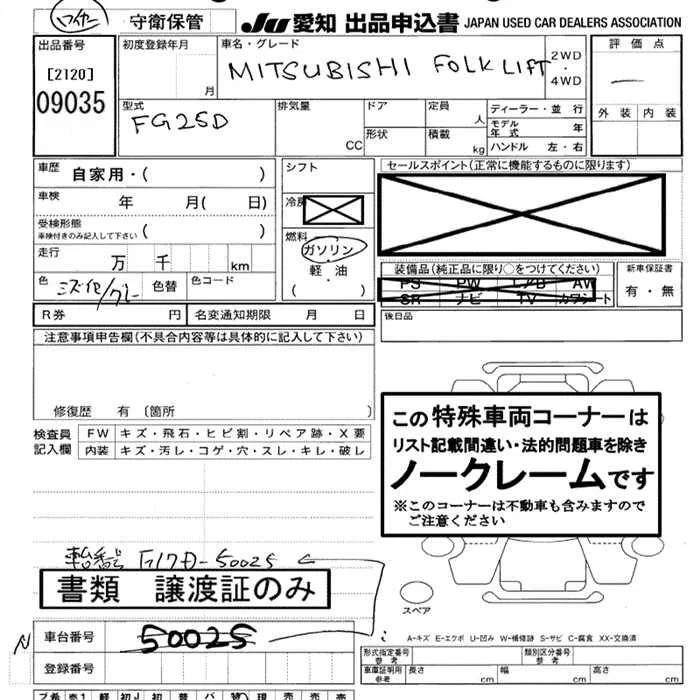 守衛保管 JU 愛知 出品申込書 JAPAN USED CAR DEALERS ASSOCIATION
出品番号
[2120]
09035
初度登録年月
月
車名・グレード
MITSUBISHI FOLK LIFT
2WD
・
4WD
評価点
外装 内装
型式
FG25D
排気量
CC
ドア
形状
定員
人
積載
kg
ディーラー・並 行
モデル年式 年
ハンドル 左・右
車歴 自家用・( )
車検 年 月( 日)
受検形態
車検付きのみ記入して下さい ( )
走行 万 千 km
色 色替 色コード
シフト
冷房
燃料
ガソリン
・
軽・油
( )
セールスポイント(正常に機能するものに限ります)
装備品(純正品に限り○をつけてください)
PS PW L/B AW
SR ナビ TV カワシート
新車保証書
有・無
後日品
R券 円 名変通知期限 月 日
注意事項申告欄(不具合内容等は具体的に記入して下さい)
修復歴 有 〔箇所 〕
検査員
記入欄
FW キズ・飛石・ヒビ割・リペア跡・X要
内装 キズ・汚レ・コゲ・穴・スレ・キレ・破レ
この特殊車両コーナーは
リスト記載間違い・法的問題車を除き
ノークレームです
※このコーナーは不動車も含みますので
ご注意ください
書類 譲渡証のみ
スペア
車台番号 50025
登録番号
A-キズ E-エクボ U-凹み W-補修跡 S-サビ C-腐食 XX-交換済
形式指定番号
参考
類別区分番号
参考
車庫証明用
参考
長さ 幅 高さ
cm cm cm